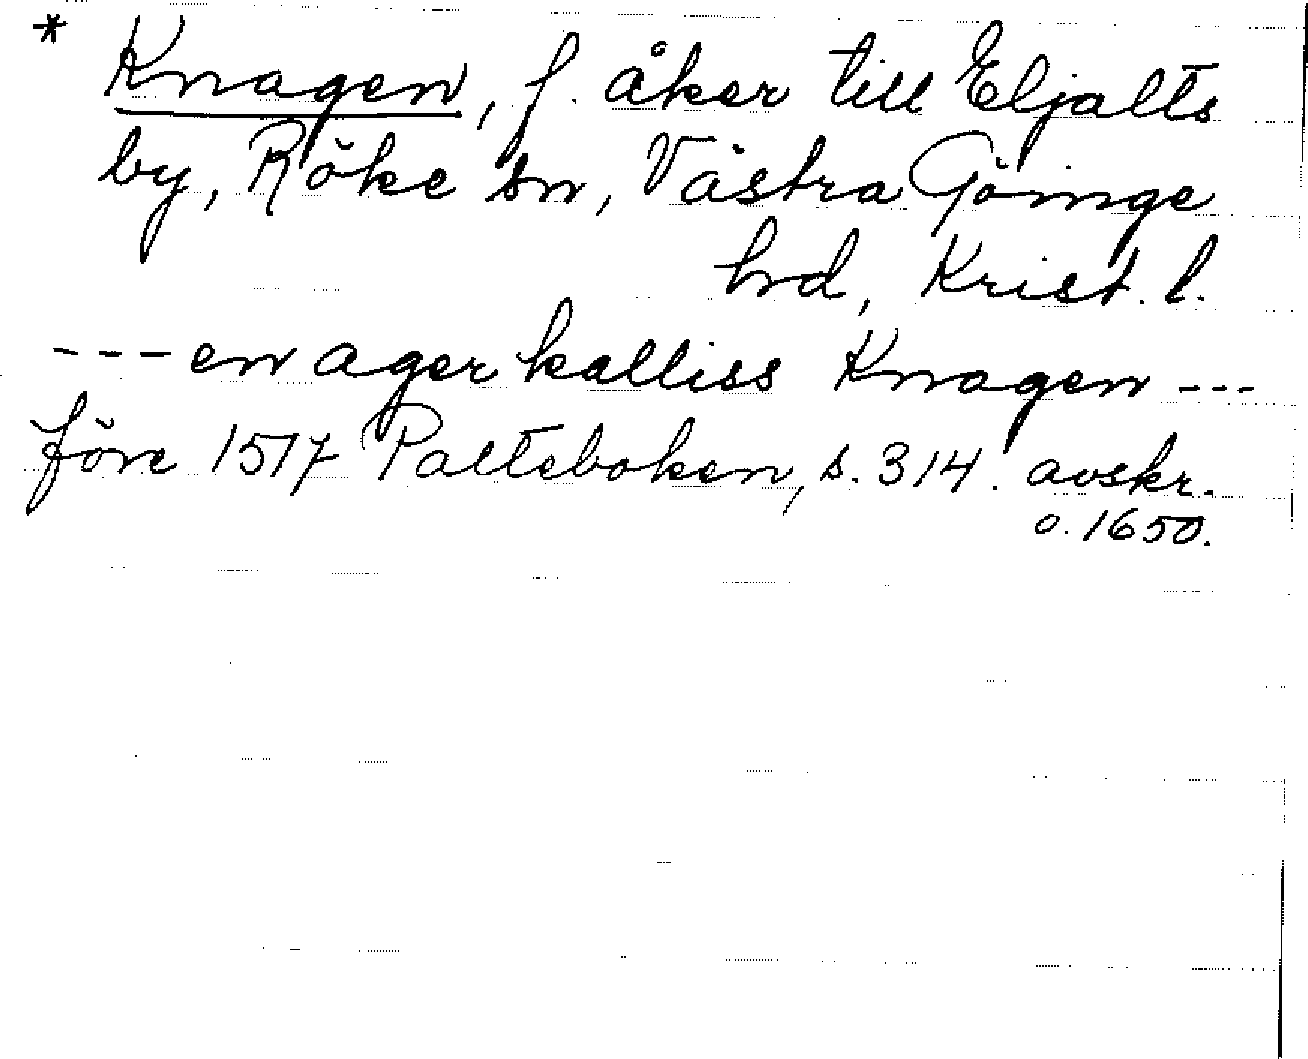 * Knagen, f. åker till Eljalts
by, Röke sn, Västra Göinge
hrd, Krist. l.
--- en ager kalliss Knagen ---
före 1517 Palteboken, s. 314. avskr.
o. 1650.